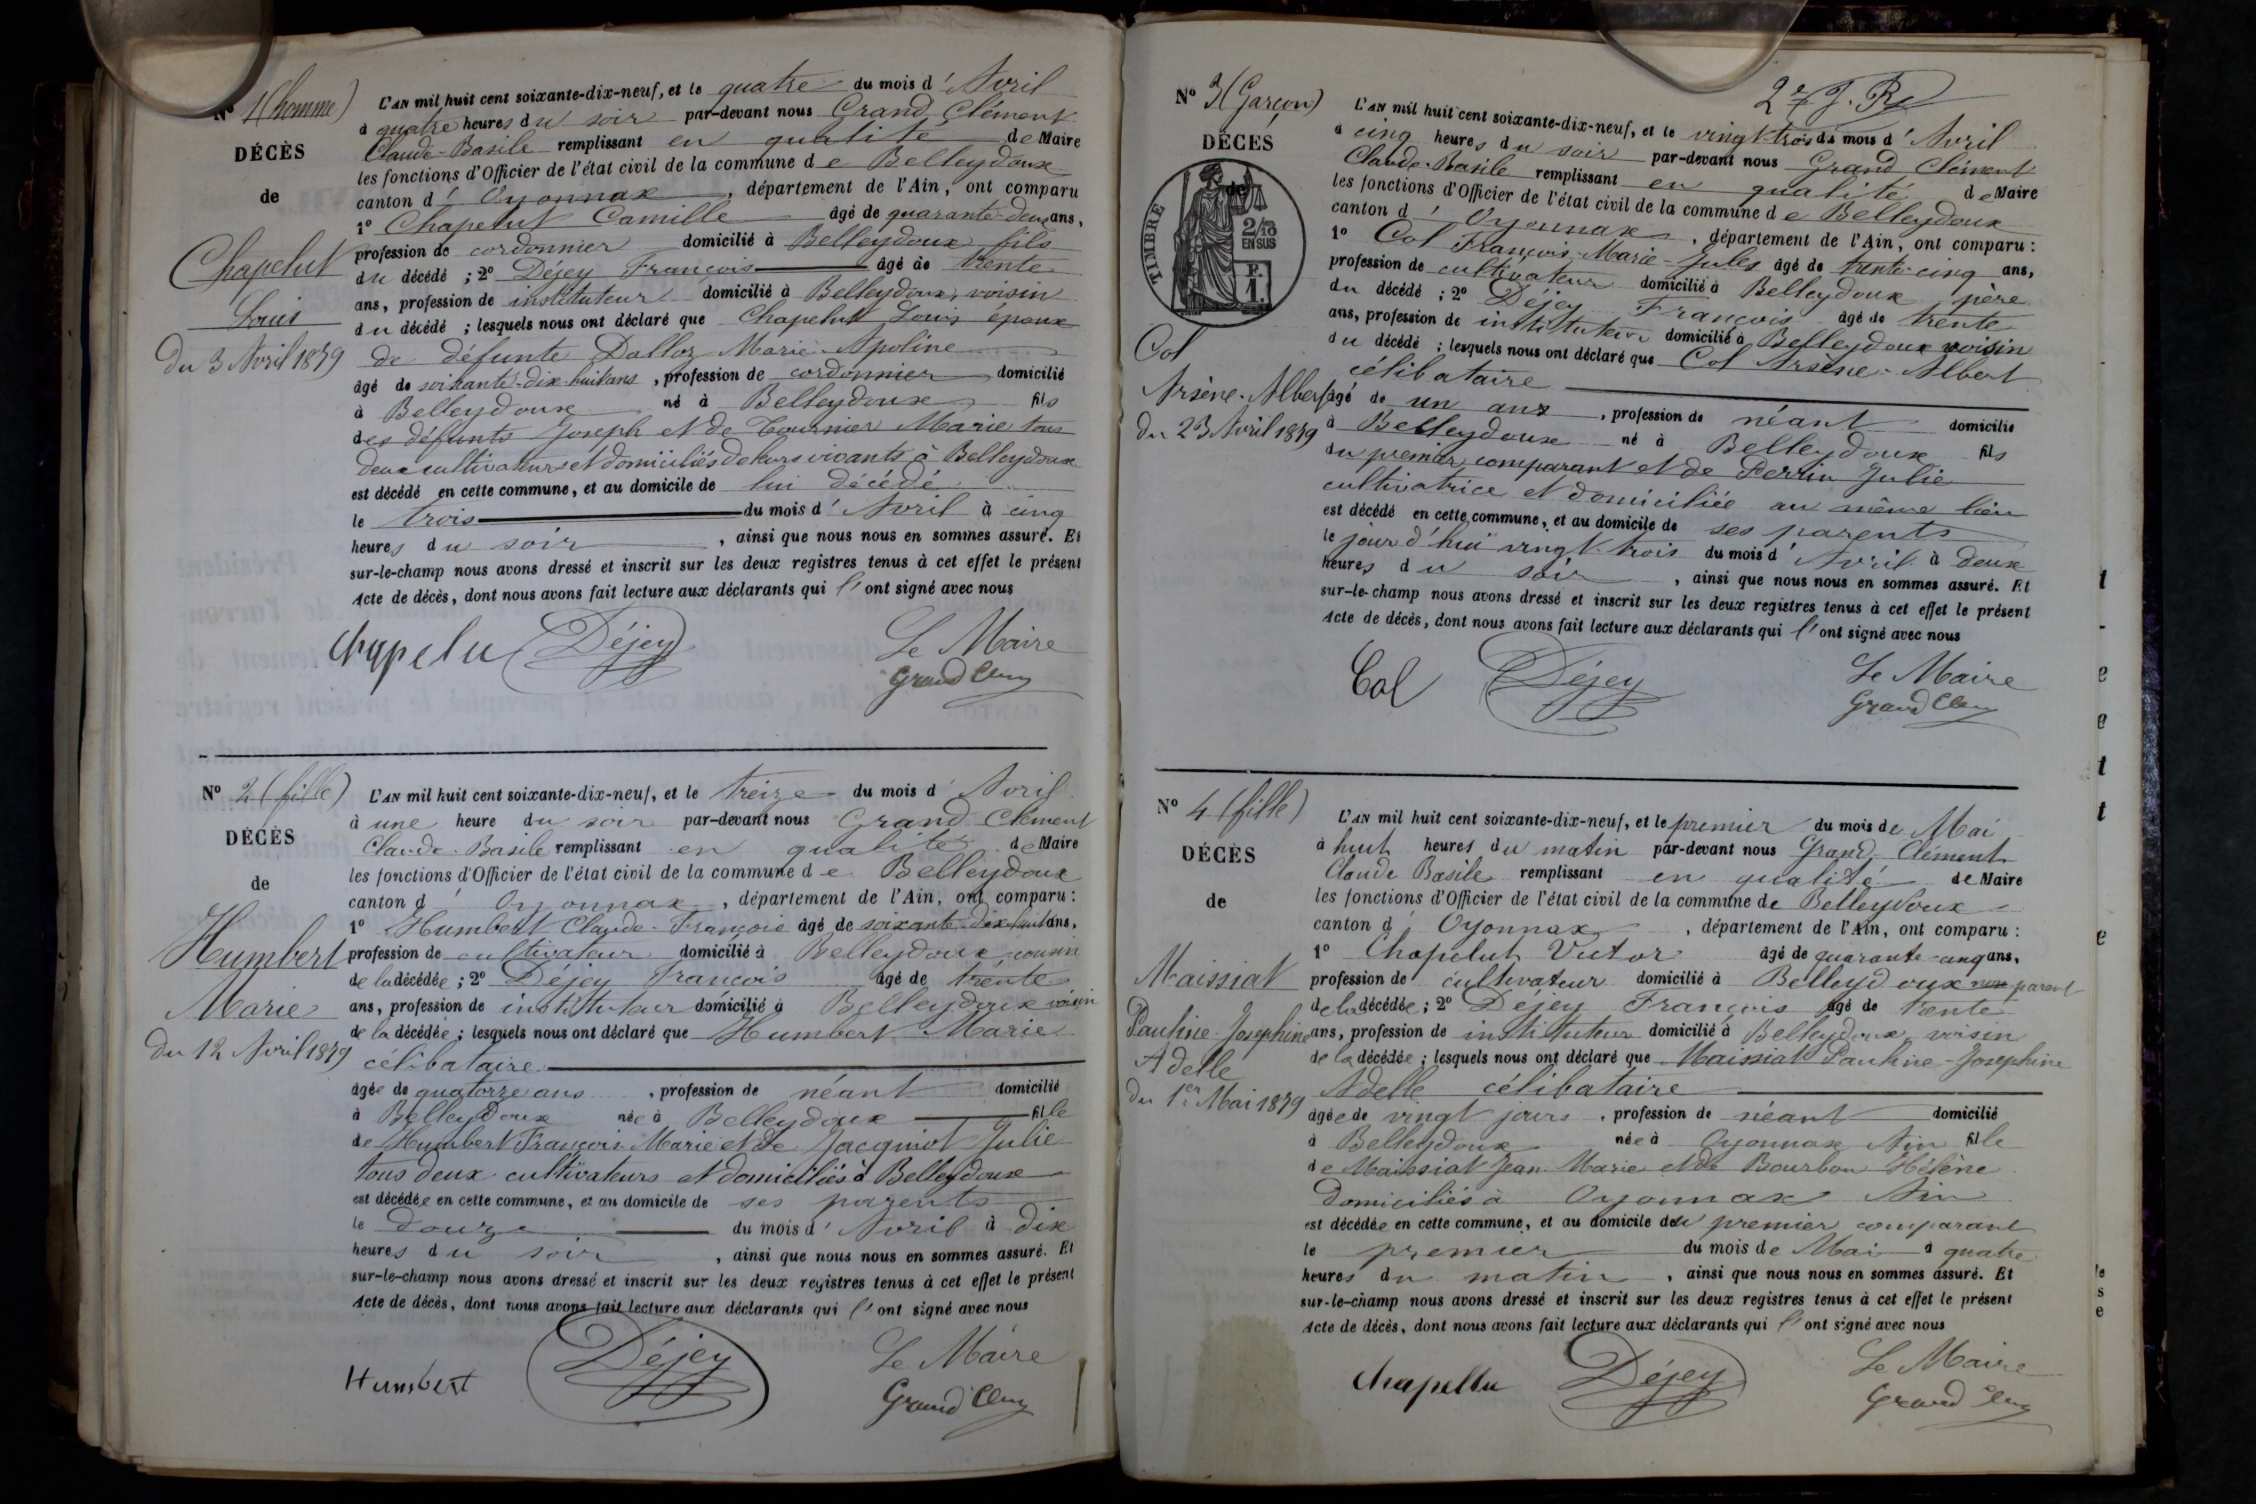 N° 1 (homme)
DÉCÈS
de
Chapelut
Louis
Du 3 Avril 1879
L'AN mil huit cent soixante-dix-neuf, et le quatre du mois d'Avril
à quatre heures du soir par-devant nous Grand Clément
Claude-Basile remplissant en qualité de Maire
les fonctions d'Officier de l'état civil de la commune de Belleydoux
canton d'Oyonnax, département de l'Ain, ont comparu
1° Chapelut Camille âgé de quarante-deux ans,
profession de cordonnier domicilié à Belleydoux fils
du décédé ; 2° Déjey François âgé de trente
ans, profession de instituteur domicilié à Belleydoux, voisin
du décédé ; lesquels nous ont déclaré que Chapelut Louis époux
de défunte Dalloz Marie-Apoline
âgé de soixante-dix huit ans, profession de cordonnier domicilié
à Belleydoux né à Belleydoux fils
des défunts Joseph et de Tournier Marie tous
deux cultivateurs et domiciliés de leurs vivants à Belleydoux
est décédé en cette commune, et au domicile de lui décédé
le trois du mois d'Avril à cinq
heures du soir, ainsi que nous nous en sommes assuré. Et
sur-le-champ nous avons dressé et inscrit sur les deux registres tenus à cet effet le présent
Acte de décès, dont nous avons fait lecture aux déclarants qui l'ont signé avec nous
Le Maire
Chapelu Déjey Grand Clem
N° 2 (fille)
DÉCÈS
de
Humbert
Marie
Du 12 Avril 1879
L'AN mil huit cent soixante-dix-neuf, et le treize du mois d'Avril
à une heure du soir par-devant nous Grand Clément
Claude-Basile remplissant en qualité de Maire
les fonctions d'Officier de l'état civil de la commune de Belleydoux
canton d'Oyonnax, département de l'Ain, ont comparu :
1° Humbert Claude-François âgé de soixante-dix-huit ans,
profession de cultivateur domicilié à Belleydoux, cousin
de la décédée ; 2° Déjey François âgé de trente
ans, profession de instituteur domicilié à Belleydoux voisin
de la décédée ; lesquels nous ont déclaré que Humbert Marie
célibataire
âgée de quatorze ans, profession de néant domicilié
à Belleydoux née à Belleydoux fille
de Humbert François-Marie et de Jacquiot Julie
tous deux cultivateurs et domiciliés à Belleydoux
est décédée en cette commune, et au domicile de ses parents
le douze du mois d'Avril à dix
heures du soir, ainsi que nous nous en sommes assuré. Et
sur-le-champ nous avons dressé et inscrit sur les deux registres tenus à cet effet le présent
Acte de décès, dont nous avons fait lecture aux déclarants qui l'ont signé avec nous
Le Maire
Humbert Déjey Grand Clem
N° 3 (Garçon)
DÉCÈS
de
TIMBRE
2/10
EN SUS
F.
1.
Col
Arsène-Albert
Du 23 Avril 1879
L'AN mil huit cent soixante-dix-neuf, et le vingt-trois du mois d'Avril
à cinq heures du soir par-devant nous Grand Clément
Claude-Basile remplissant en qualité de Maire
les fonctions d'Officier de l'état civil de la commune de Belleydoux
canton d'Oyonnax, département de l'Ain, ont comparu :
1° Col François-Marie-Jules âgé de trente-cinq ans,
profession de cultivateur domicilié à Belleydoux père
du décédé ; 2° Déjey François âgé de trente
ans, profession de instituteur domicilié à Belleydoux voisin
du décédé ; lesquels nous ont déclaré que Col Arsène-Albert
célibataire
âgé de un ans, profession de néant domicilié
à Belleydoux né à Belleydoux fils
du premier comparant et de Perrin Julie
cultivatrice et domiciliée au même lieu
est décédé en cette commune, et au domicile de ses parents
le jour d'hui vingt-trois du mois d'Avril à deux
heures du soir, ainsi que nous nous en sommes assuré. Et
sur-le-champ nous avons dressé et inscrit sur les deux registres tenus à cet effet le présent
Acte de décès, dont nous avons fait lecture aux déclarants qui l'ont signé avec nous
Le Maire
Col Déjey Grand Clem
N° 4 (fille)
DÉCÈS
de
Maissiat
Pauline-Josephine
Adelle
Du 1er Mai 1879
L'AN mil huit cent soixante-dix-neuf, et le premier du mois de Mai
à huit heures du matin par-devant nous Grand Clément
Claude Basile remplissant en qualité de Maire
les fonctions d'Officier de l'état civil de la commune de Belleydoux
canton d'Oyonnax, département de l'Ain, ont comparu :
1° Chapelut Victor âgé de quarante-cinq ans,
profession de cultivateur domicilié à Belleydoux non parent
de la décédée ; 2° Déjey François âgé de trente
ans, profession de instituteur domicilié à Belleydoux voisin
de la décédée ; lesquels nous ont déclaré que Maissiat Pauline-Josephine
Adelle célibataire
âgée de vingt jours, profession de néant domicilié
à Belleydoux née à Oyonnax Ain fille
de Maissiat Jean-Marie et de Bourbon Hélène
domiciliés à Oyonnax Ain
est décédée en cette commune, et au domicile du premier comparant
le premier du mois de Mai à quatre
heures du matin, ainsi que nous nous en sommes assuré. Et
sur-le-champ nous avons dressé et inscrit sur les deux registres tenus à cet effet le présent
Acte de décès, dont nous avons fait lecture aux déclarants qui l'ont signé avec nous
Le Maire
Chapellu Déjey Grand Clem